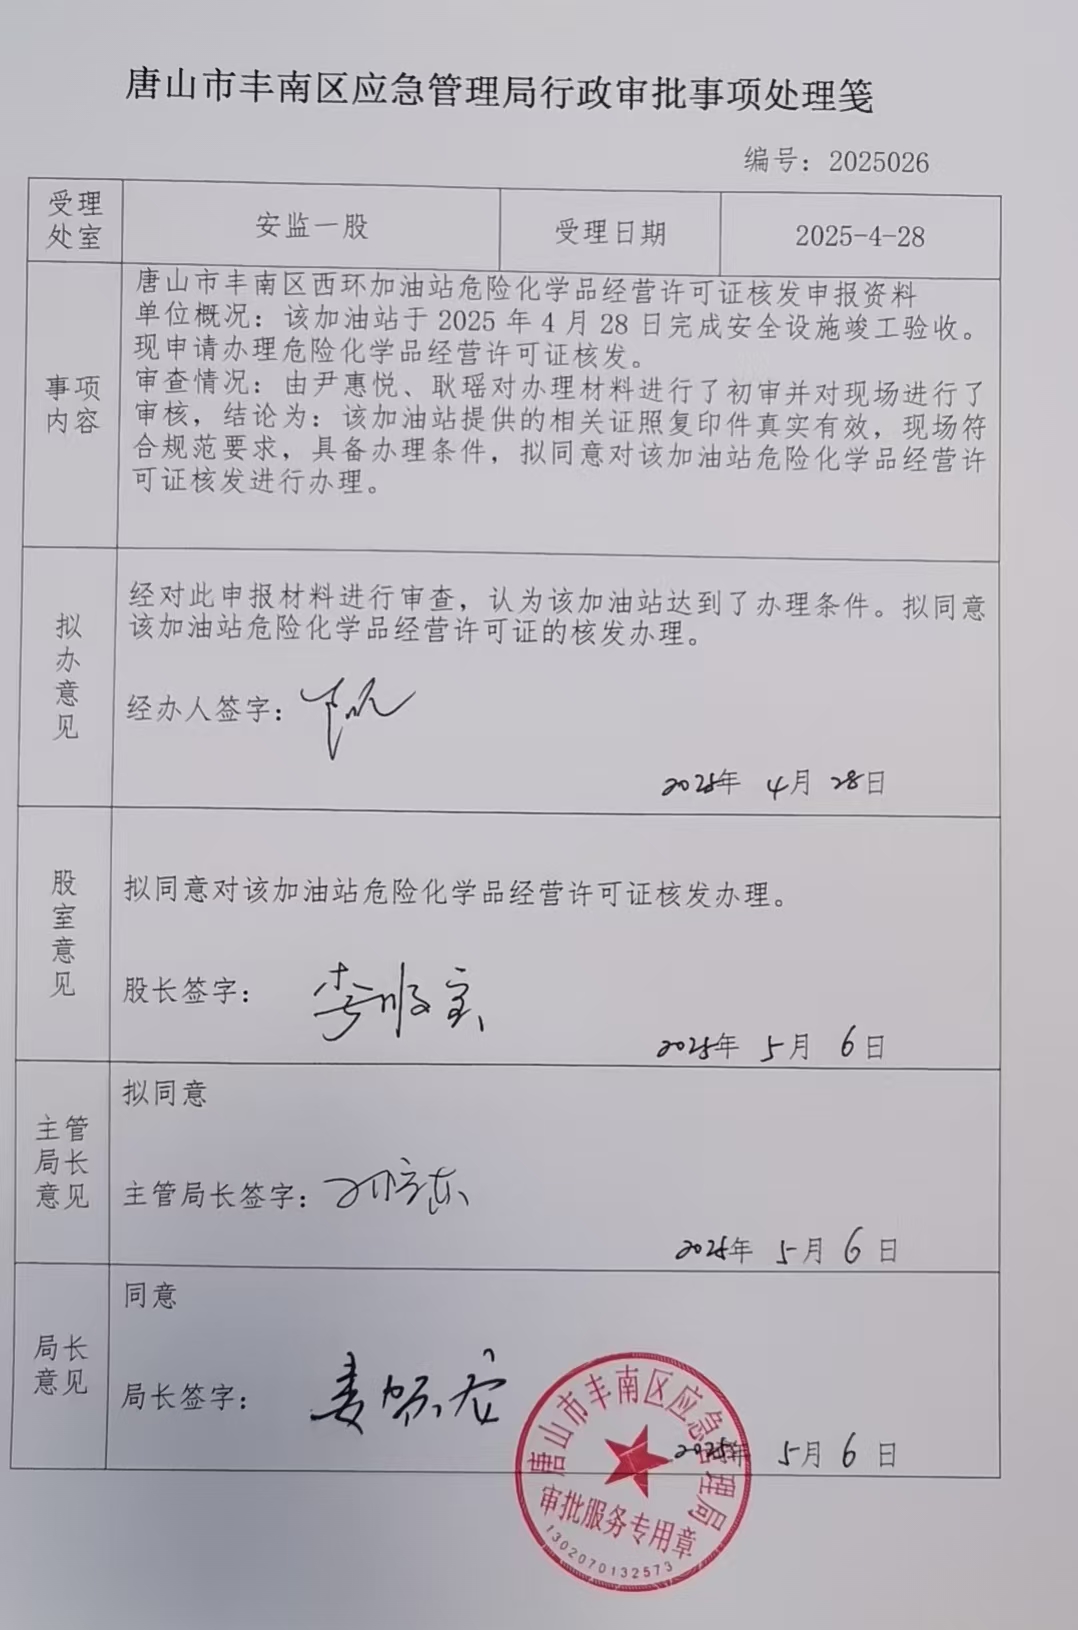 唐山市丰南区应急管理局行政审批事项处理笺
编号：2025026
受理处室
安监一股
受理日期
2025-4-28
事项内容
唐山市丰南区西环加油站危险化学品经营许可证核发申报资料
单位概况：该加油站于 2025 年 4 月 28 日完成安全设施竣工验收。
现申请办理危险化学品经营许可证核发。
审查情况：由尹惠悦、耿瑶对办理材料进行了初审并对现场进行了
审核，结论为：该加油站提供的相关证照复印件真实有效，现场符
合规范要求，具备办理条件，拟同意对该加油站危险化学品经营许
可证核发进行办理。
拟办意见
经对此申报材料进行审查，认为该加油站达到了办理条件。拟同意
该加油站危险化学品经营许可证的核发办理。
经办人签字：
2025年 4月 28日
股室意见
拟同意对该加油站危险化学品经营许可证核发办理。
股长签字：李顺宝
2025年 5月 6日
主管局长意见
拟同意
主管局长签字：
2025年 5月 6日
局长意见
同意
局长签字：
2025年 5月 6日
唐山市丰南区应急管理局
审批服务专用章
1302070132573